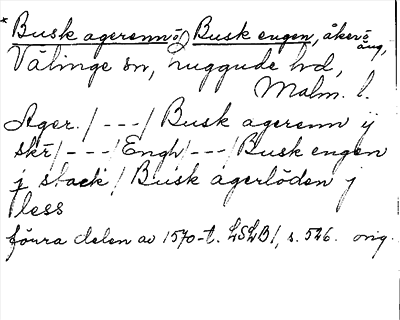 * Busk agerenn o Busk engen, åker o äng,
Välinge sn, Luggude hd,
Malm. l.
Ager. / --- / Busk agerenn ij
skr / --- / Engh / --- / Busk engen
j stack / Busk agerlöden j
less
förra delen av 1570-t. LSLB 1, s. 526. orig.